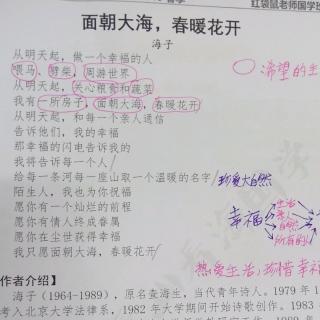 红袋鼠老师国学班
面朝大海，春暖花开
海子
从明天起，做一个幸福的人
喂马、劈柴，周游世界
从明天起，关心粮食和蔬菜
我有一所房子，面朝大海，春暖花开
从明天起，和每一个亲人通信
告诉他们，我的幸福
那幸福的闪电告诉我的
我将告诉每一个人
给每一条河每一座山取一个温暖的名字
陌生人，我也为你祝福
愿你有一个灿烂的前程
愿你有情人终成眷属
愿你在尘世获得幸福
我只愿面朝大海，春暖花开
希望的生
珍爱大自然
幸福
生活
亲人
自然
所有的
热爱生活，珍惜幸福
作者介绍】
海子（1964-1989），原名查海生，当代青年诗人。1979 年 1
考入北京大学法律系，1982 年大学期间开始诗歌创作。1983